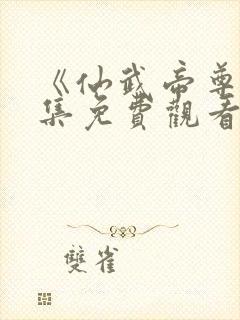 《仙武帝尊
集免費觀看
雙雀